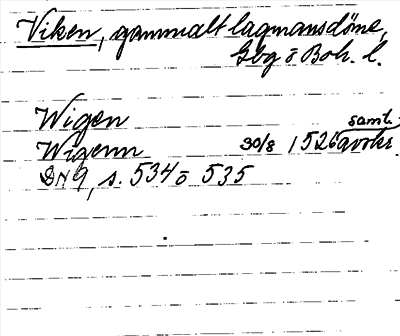 Viken, gammalt lagmansdöme,
Gbg o Boh. l.
Wigen
Wigenn 30/8 1526 samt. avskr.
DN 9, s. 534 o 535